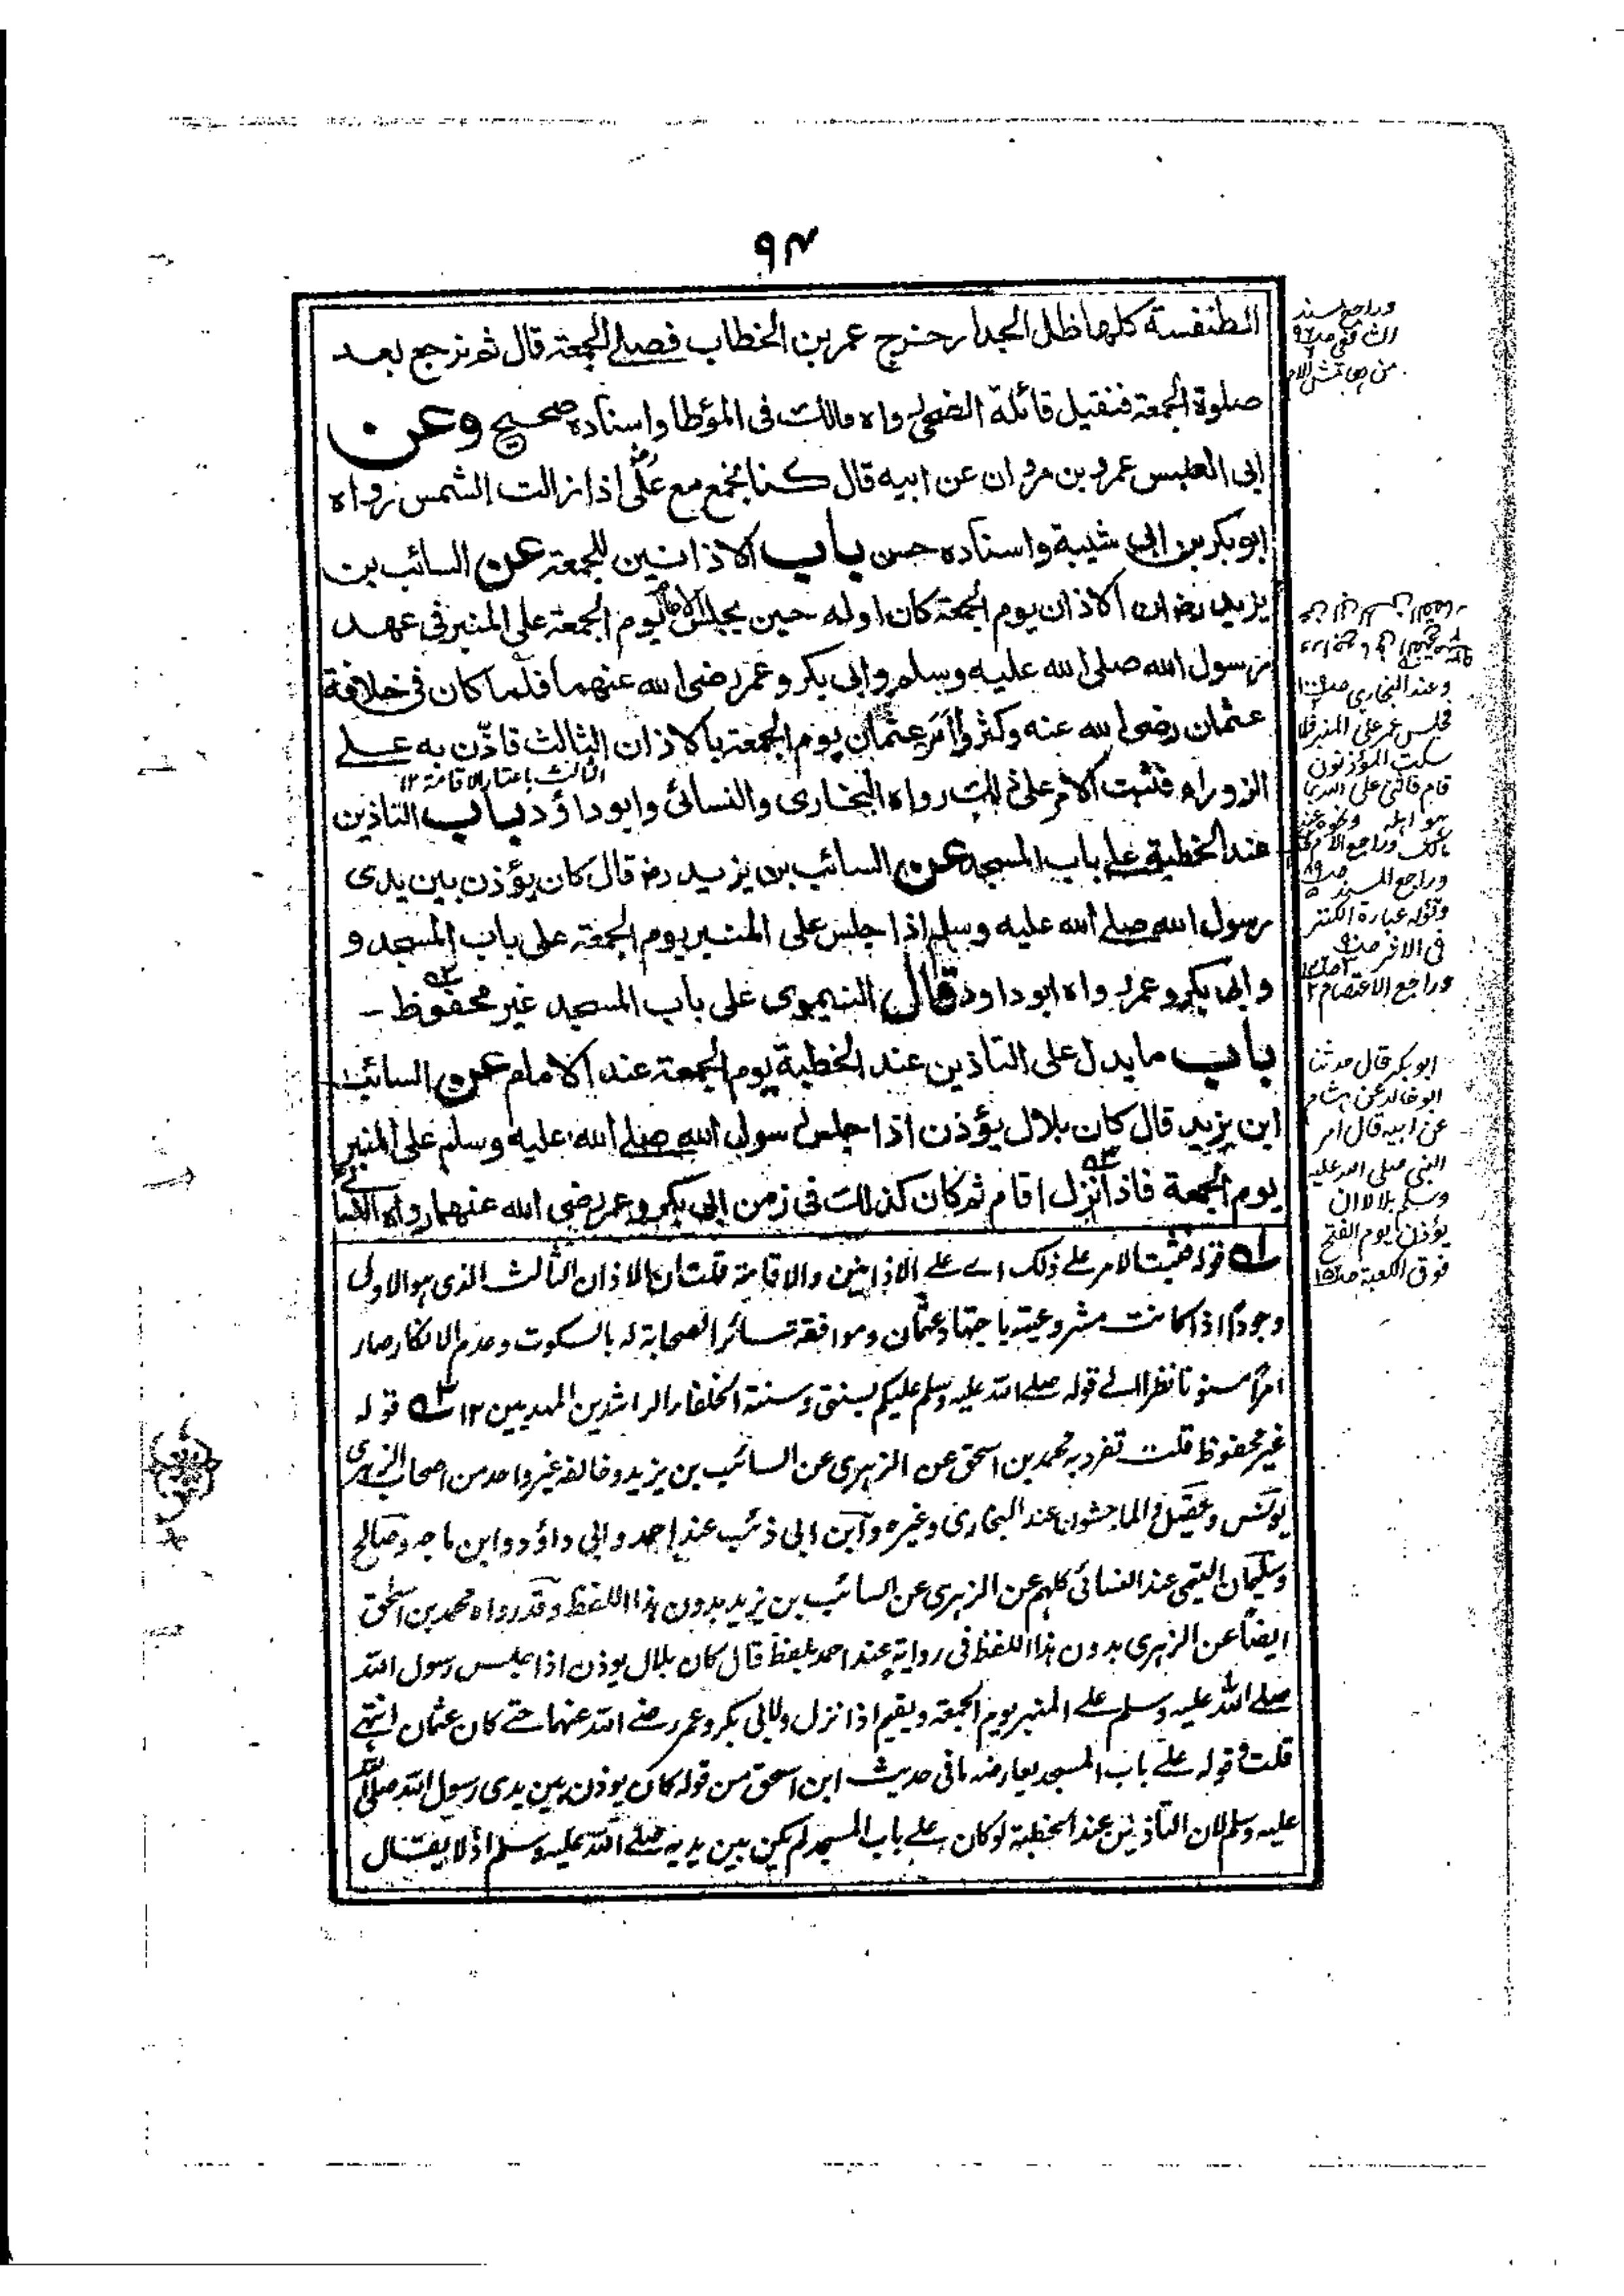 ٩٤
الطنفسة كلها ظل الجدار خرج عمر بن الخطاب فصلى الجمعة قال ثم نرجع بعد
صلوة الجمعة فنقيل قائلة الضحى رواه مالك فى المؤطا واسناده صحيح وعن
ابى العنبس عمرو بن مروان عن ابيه قال كنا نجمع مع علىّ اذا زالت الشمس رواه
ابوبكر بن ابى شيبة واسناده حسن باب الاذانين للجمعة عن السائب بن
يزيد رض ان الاذان يوم الجمعة كان اوله حين يجلس الامام يوم الجمعة على المنبر فى عهد
رسول الله صلى الله عليه وسلم وابى بكر وعمر رضى الله عنهما فلما كان فى خلافة
عثمان رضى الله عنه وكثروا امر عثمان يوم الجمعة بالاذان الثالث فاذّن به على
الثالث باعتبار الاقامة ١٢
الزوراء فثبت الامر على ذلك رواه البخارى والنسائى وابوداؤد باب التاذين
عند الخطبة على باب المسجد عن السائب بن يزيد رض قال كان يؤذن بين يدى
رسول الله صلى الله عليه وسلم اذا جلس على المنبر يوم الجمعة على باب المسجد و
وابى بكر وعمر رواه ابوداود قال النيموى على باب المسجد غير محفوظ -
باب ما يدل على التاذين عند الخطبة يوم الجمعة عند الامام عن السائب
ابن يزيد قال كان بلال يؤذن اذا جلس رسول الله صلى الله عليه وسلم على المنبر
يوم الجمعة فاذا نزل اقام ثم كان كذلك فى زمن ابى بكر وعمر رضى الله عنهما رواه النسائى
قوله فثبت الامر على ذلك اے على الاذانين والاقامة قلت ان الاذان الثالث الذى هو الاولى
وجودًا اذا كانت مشروعيته باجتهاد عثمان وموافقة سائر الصحابة له بالسكوت وعدم الانكار صار
امرًا مسنونا نظرا الى قوله صلى الله عليه وسلم عليكم بسنتى وسنة الخلفاء الراشدين المهديين ١٢ قوله
غير محفوظ قلت تفرد به محمد بن اسحق عن الزهرى عن السائب بن يزيد وخالفه غير واحد من اصحاب الزهرى
يونس وعقيل والماجشون عند البخارى وغيره وابن ابى ذئب عند احمد وابى داؤد وابن ماجه وصالح
وسليمان التيمى عند النسائى كلهم عن الزهرى عن السائب بن يزيد بدون هذا اللفظ وقد رواه محمد بن اسحق
ايضًا عن الزهرى بدون هذا اللفظ فى رواية عند احمد بلفظ قال كان بلال يوذن اذا جلس رسول الله
صلى الله عليه وسلم على المنبر يوم الجمعة ويقيم اذا نزل ولابى بكر وعمر رضى الله عنهما حتى كان عثمان انتهى
قلت قوله على باب المسجد يعارضه ما فى حديث ابن اسحق من قوله كان يوذن بين يدى رسول الله صلى الله
عليه وسلم لان التاذين عند الخطبة لو كان على باب المسجد لم يكن بين يديه صلى الله عليه وسلم اذ لا يقال
وراجع مسند
الشافعى
وعند البخارى
فجلس عمر على المنبر فلما
سكت المؤذنون
قام فاثنى على الله بما
هو اهله ونحوه عند
مالك وراجع الام
وراجع المسند
وقوله عبارة الكنز
فى الآخر
وراجع الاعتصام
ابوبكر قال حدثنا
ابو خالد عن هشام
عن ابيه قال امر
النبى صلى الله عليه
وسلم بلالا ان
يؤذن يوم الفتح
فوق الكعبة